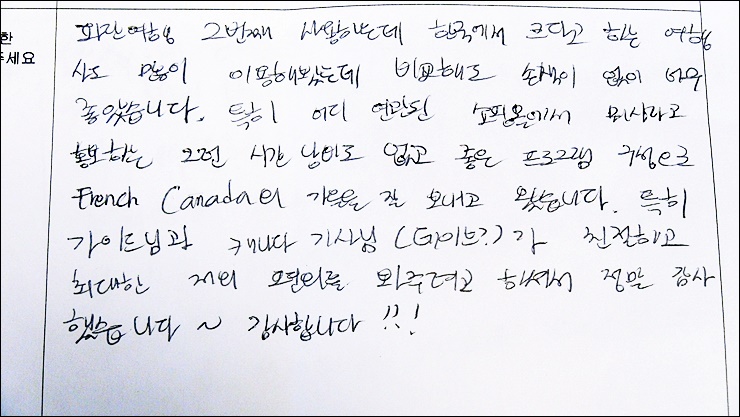 한
주세요
파란여행 2번째 사용하는데 한국에서 크다고 하는 여행
사도 많이 이용해봤는데 비교해도 손색이 없이 너무
좋았습니다. 특히 어디 연관된 쇼핑몰에서 며 사라고
홍보하는 그런 시간 낭비도 없고 좋은 프로그램 구성으로
French Canada의 가을을 잘 보내고 왔습니다. 특히
가이드님과 캐나다 기사님 (G이브?)가 친절하고
최대한 저희 편의를 봐주려고 하셔서 정말 감사
했습니다 ~ 감사합니다 !!!